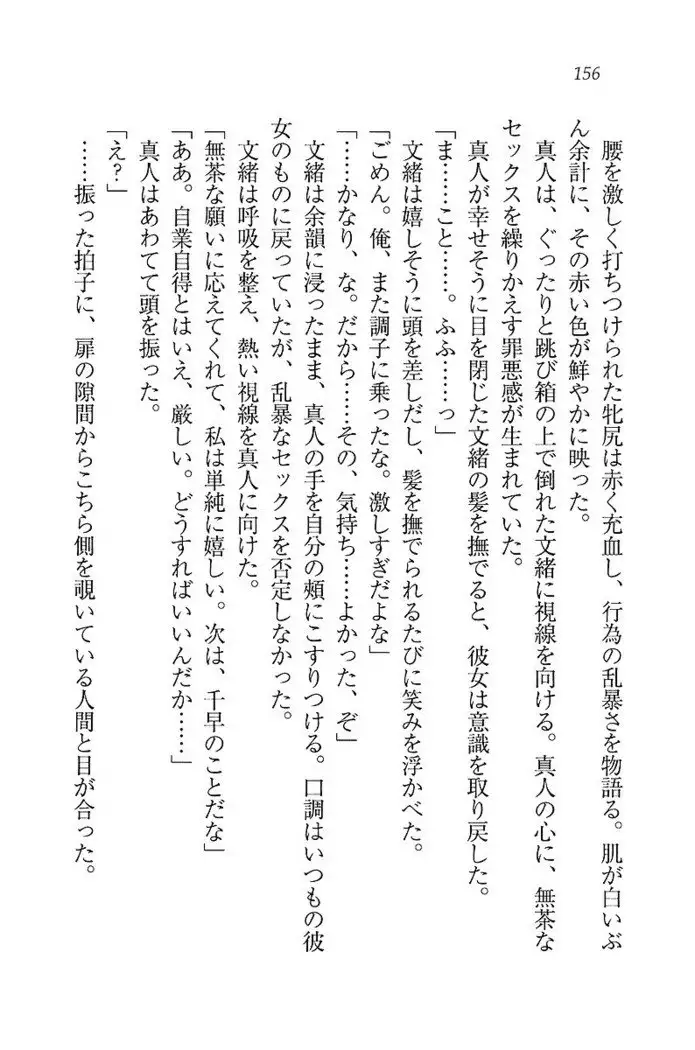 156
腰を激しく打ちつけられた牝尻は赤く充血し、行為の乱暴さを物語る。肌が白いぶ
ん余計に、その赤い色が鮮やかに映った。
真人は、ぐったりと跳び箱の上で倒れた文緒に視線を向ける。真人の心に、無茶な
セックスを繰りかえす罪悪感が生まれていた。
真人が幸せそうに目を閉じた文緒の髪を撫でると、彼女は意識を取り戻した。
「ま……こと……。ふふ……っ」
文緒は嬉しそうに頭を差しだし、髪を撫でられるたびに笑みを浮かべた。
「ごめん。俺、また調子に乗ったな。激しすぎだよな」
「……かなり、な。だから……その、気持ち……よかった、ぞ」
文緒は余韻に浸ったまま、真人の手を自分の頬にこすりつける。口調はいつもの彼
女のものに戻っていたが、乱暴なセックスを否定しなかった。
文緒は呼吸を整え、熱い視線を真人に向けた。
「無茶な願いに応えてくれて、私は単純に嬉しい。次は、千早のことだな」
「ああ。自業自得とはいえ、厳しい。どうすればいいんだか……」
真人はあわてて頭を振った。
「え?」
……振った拍子に、扉の隙間からこちら側を覗いている人間と目が合った。